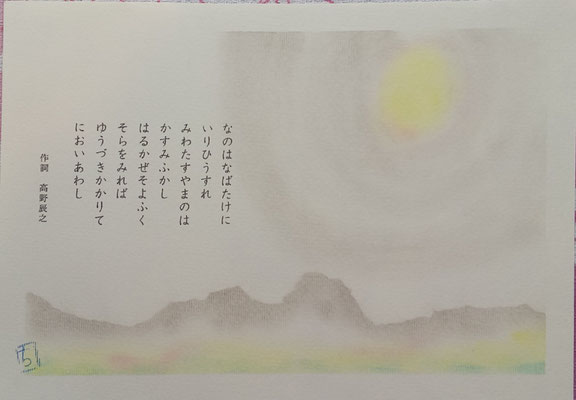 なのはなばたけに
いりひうすれ
みわたすやまのは
かすみふかし
はるかぜそよふく
そらをみれば
ゆうづきかかりて
においあわし
作詞 高野辰之